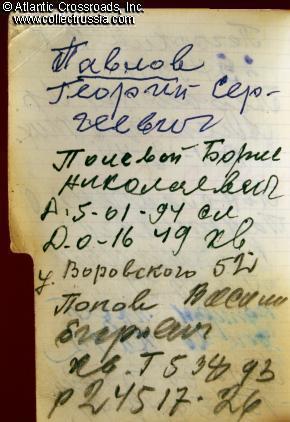 © Atlantic Crossroads, Inc.
www.collectrussia.com
Павлов
Георгий Сер-
геевич
Полевой Борис
Николаевич
Д.5-01-94 сл
Д-0-16 49 кв
у. Воровского 52
Попов Васили
кв. Т 5 38 93
р 2 45 17. 26